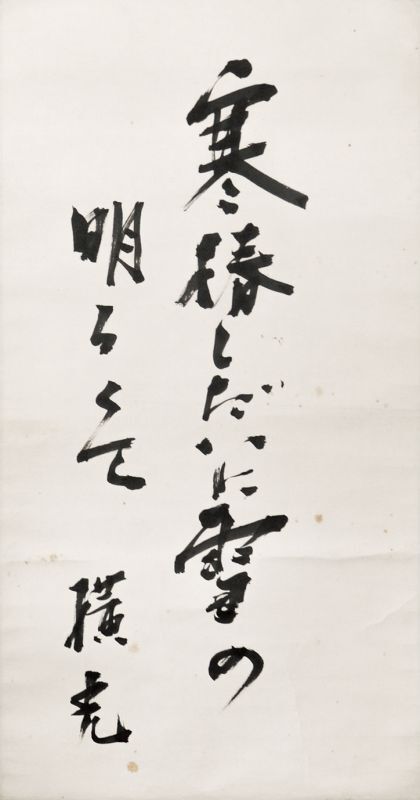 寒椿しだいに雪の
明るくて 横光